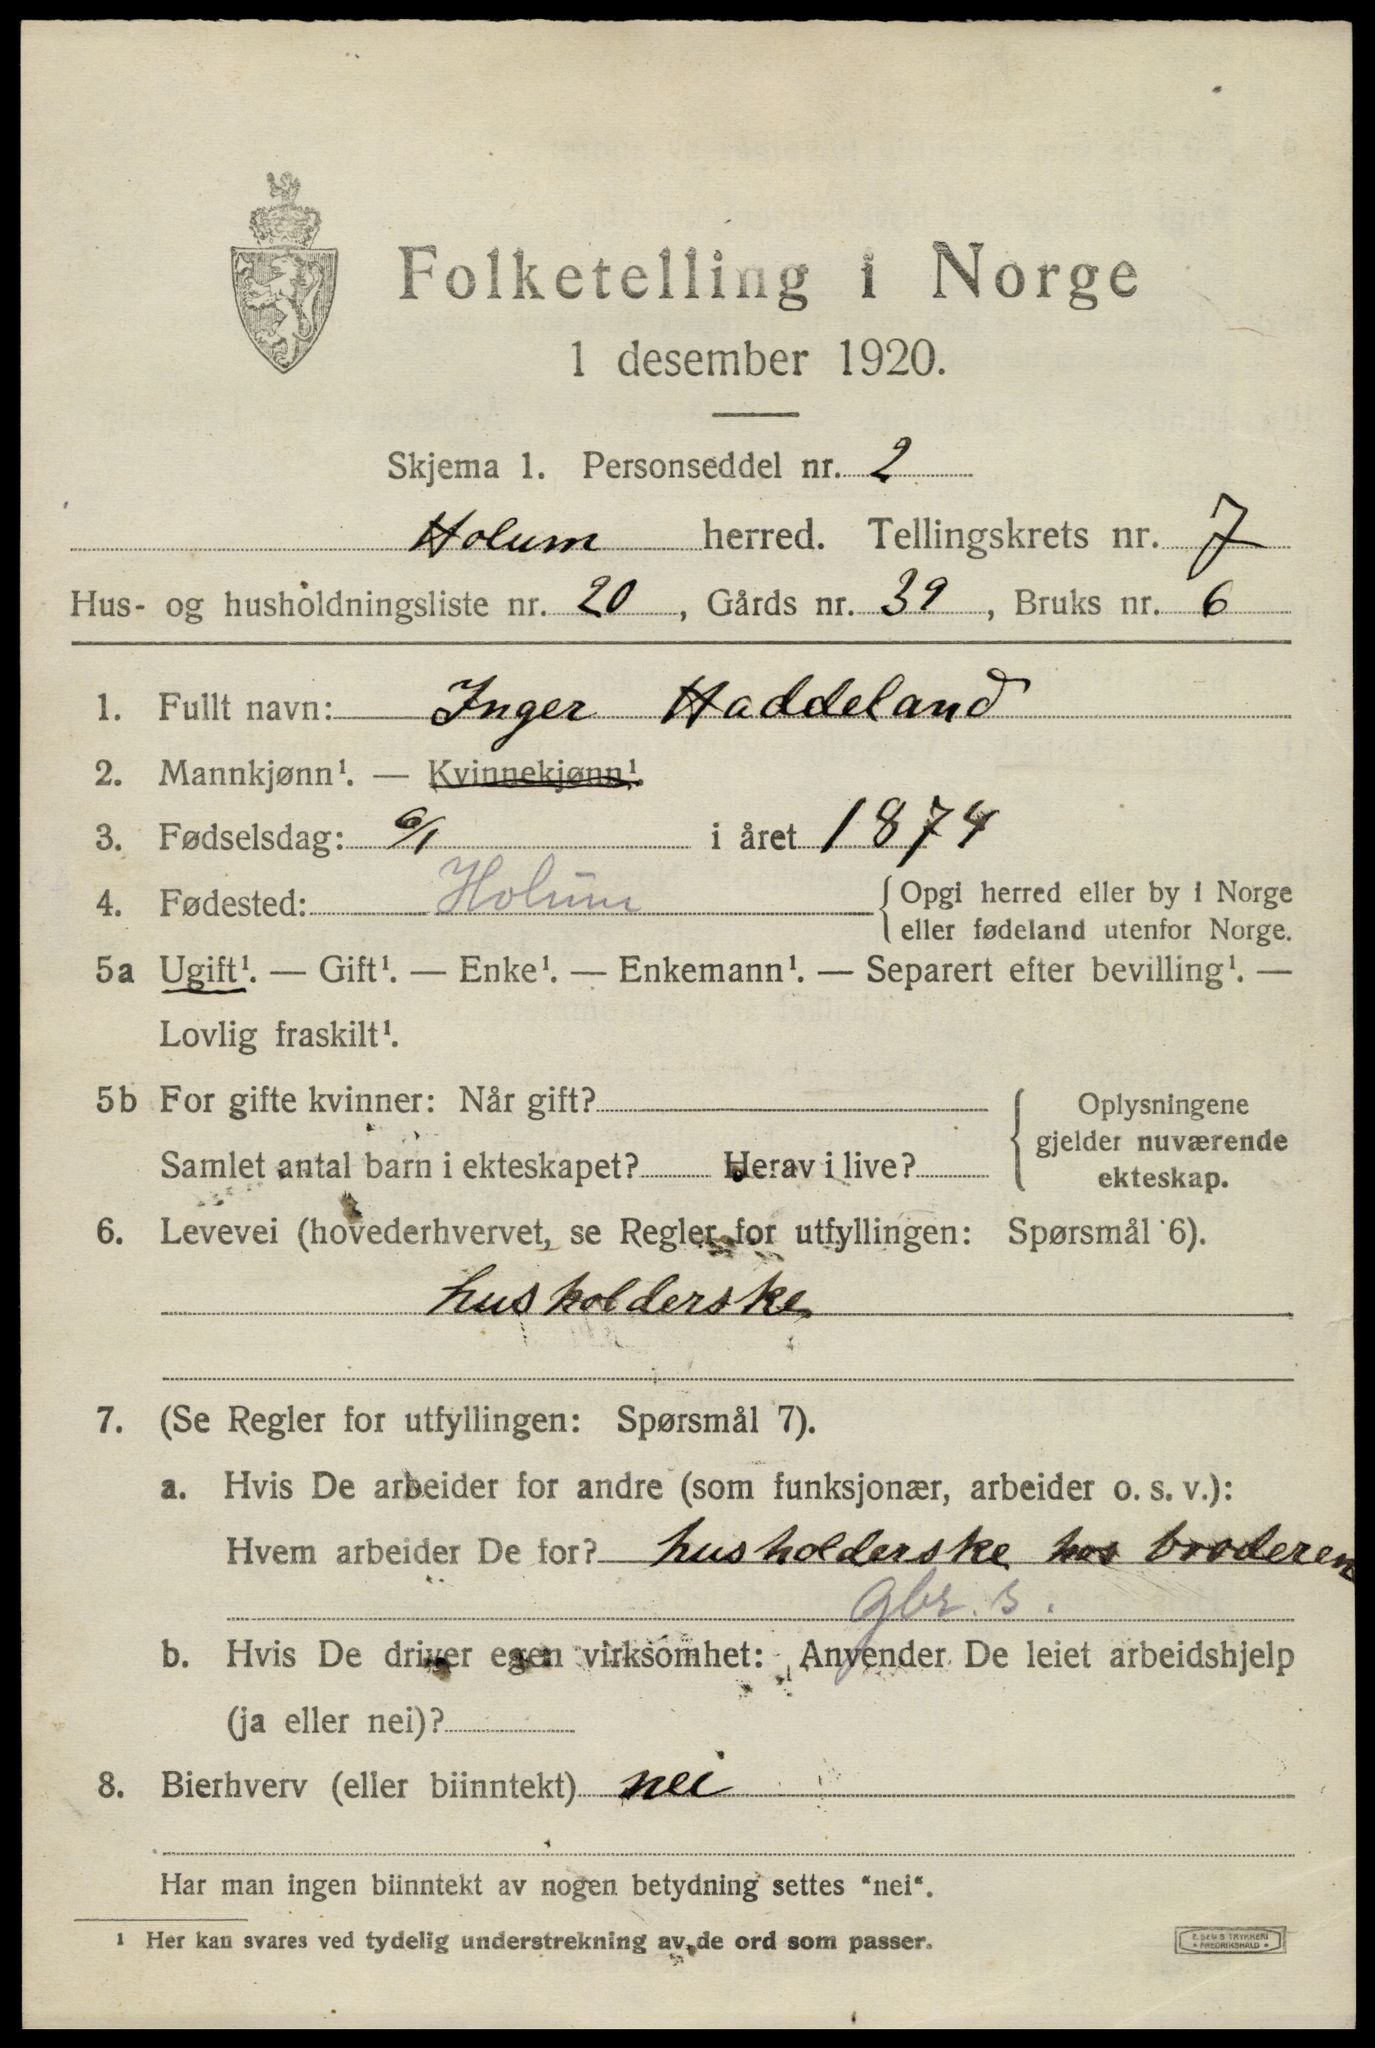 Folketelling i Norge
1 desember 1920.
Skjema 1. Personseddel nr. 2
Holum herred. Tellingskrets nr. 7
Hus- og husholdningsliste nr. 20, Gårds nr. 39, Bruks nr. 6
1. Fullt navn: Inger Haddeland
2. Mannkjønn¹. — Kvinnekjønn¹.
3. Fødselsdag: 6/1 i året 1874
4. Fødested: Holum {Opgi herred eller by i Norge
eller fødeland utenfor Norge.
5a Ugift¹. — Gift¹. — Enke¹. — Enkemann¹. — Separert efter bevilling¹. —
Lovlig fraskilt¹.
5b For gifte kvinner: Når gift? Oplysningene
gjelder nuværende
Samlet antal barn i ekteskapet? Herav i live? ekteskap.
6. Levevei (hovederhvervet, se Regler for utfyllingen: Spørsmål 6).
husholderske
7. (Se Regler for utfyllingen: Spørsmål 7).
a. Hvis De arbeider for andre (som funksjonær, arbeider o. s. v.):
Hvem arbeider De for? husholderske hos broderen
gbr. s.
b. Hvis De driver egen virksomhet: Anvender De leiet arbeidshjelp
(ja eller nei)?
8. Bierhverv (eller biinntekt) nei
Har man ingen biinntekt av nogen betydning settes "nei".
¹ Her kan svares ved tydelig understrekning av de ord som passer.
E. SEM'S TRYKKERI
• FREDRIKSHALD •